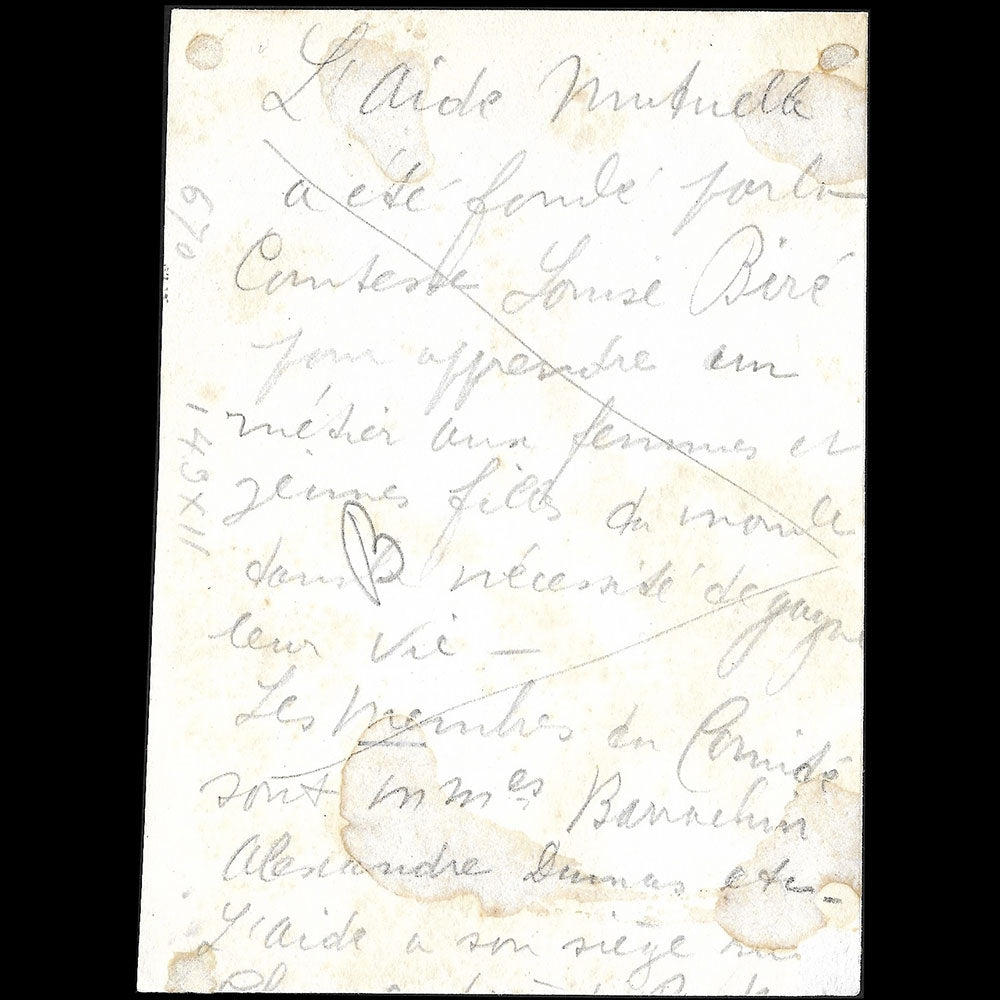 L'Aide Mutuelle
a été fondé par la
Comtesse Louise Biré
pour apprendre un
métier aux femmes et
jeunes filles du monde
dans la nécessité de gagner
leur vie —
Les membres du Comité
sont Mmes Barrachin
Alexandre Dumas etc –
L'aide a son siège
670